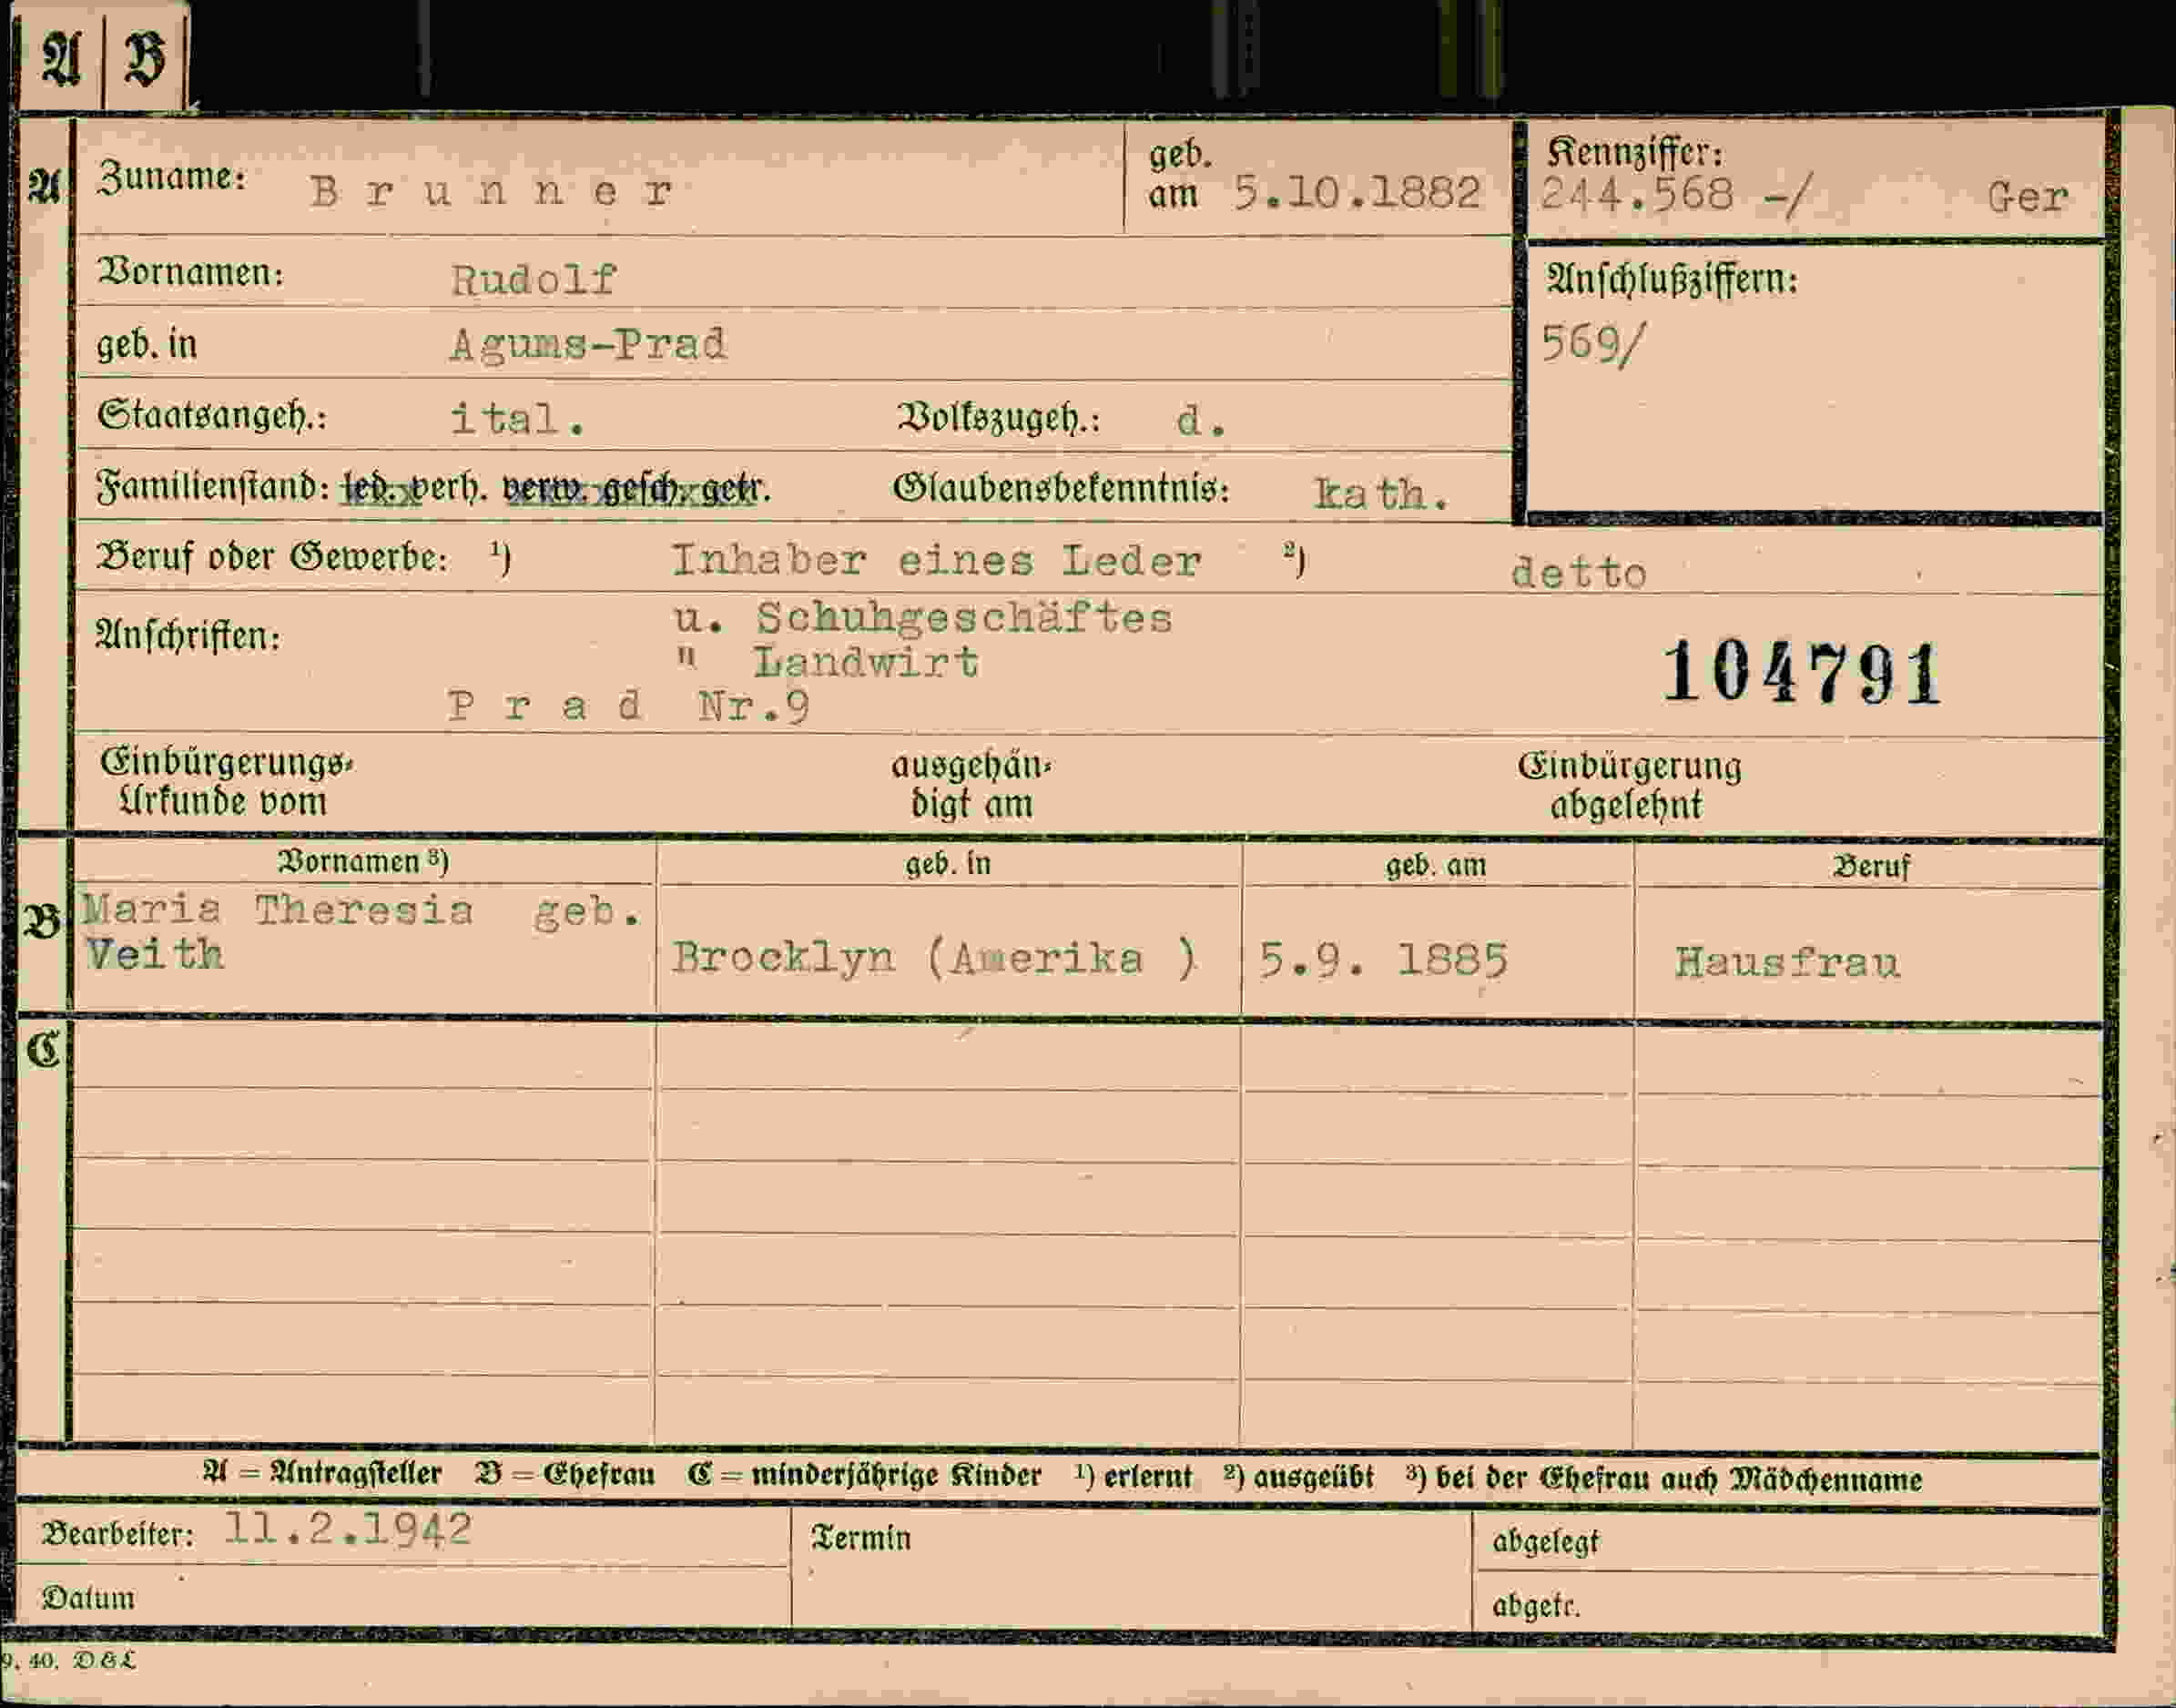 A B
A Zuname: Brunner geb. am 5.10.1882 Kennziffer: 244.568 -/ Ger
Vornamen: Rudolf Anschlußziffern:
geb. in Agums-Prad 569/
Staatsangeh.: ital. Volkszugeh.: d.
Familienstand: led. verh. verw. gesch. getr. Glaubensbekenntnis: kath.
Beruf oder Gewerbe: ¹) Inhaber eines Leder ²) detto
u. Schuhgeschäftes
Anschriften:
" Landwirt 104791
Prad Nr.9
Einbürgerungs- ausgehän- Einbürgerung
Urkunde vom digt am abgelehnt
Vornamen ³) geb. in geb. am Beruf
B Maria Theresia geb.
Veith Brocklyn (Amerika ) 5.9. 1885 Hausfrau
C
A = Antragsteller B = Ehefrau C = minderjährige Kinder ¹) erlernt ²) ausgeübt ³) bei der Ehefrau auch Mädchenname
Bearbeiter: 11.2.1942 Termin abgelegt
Datum abgetr.
9. 40. D&L